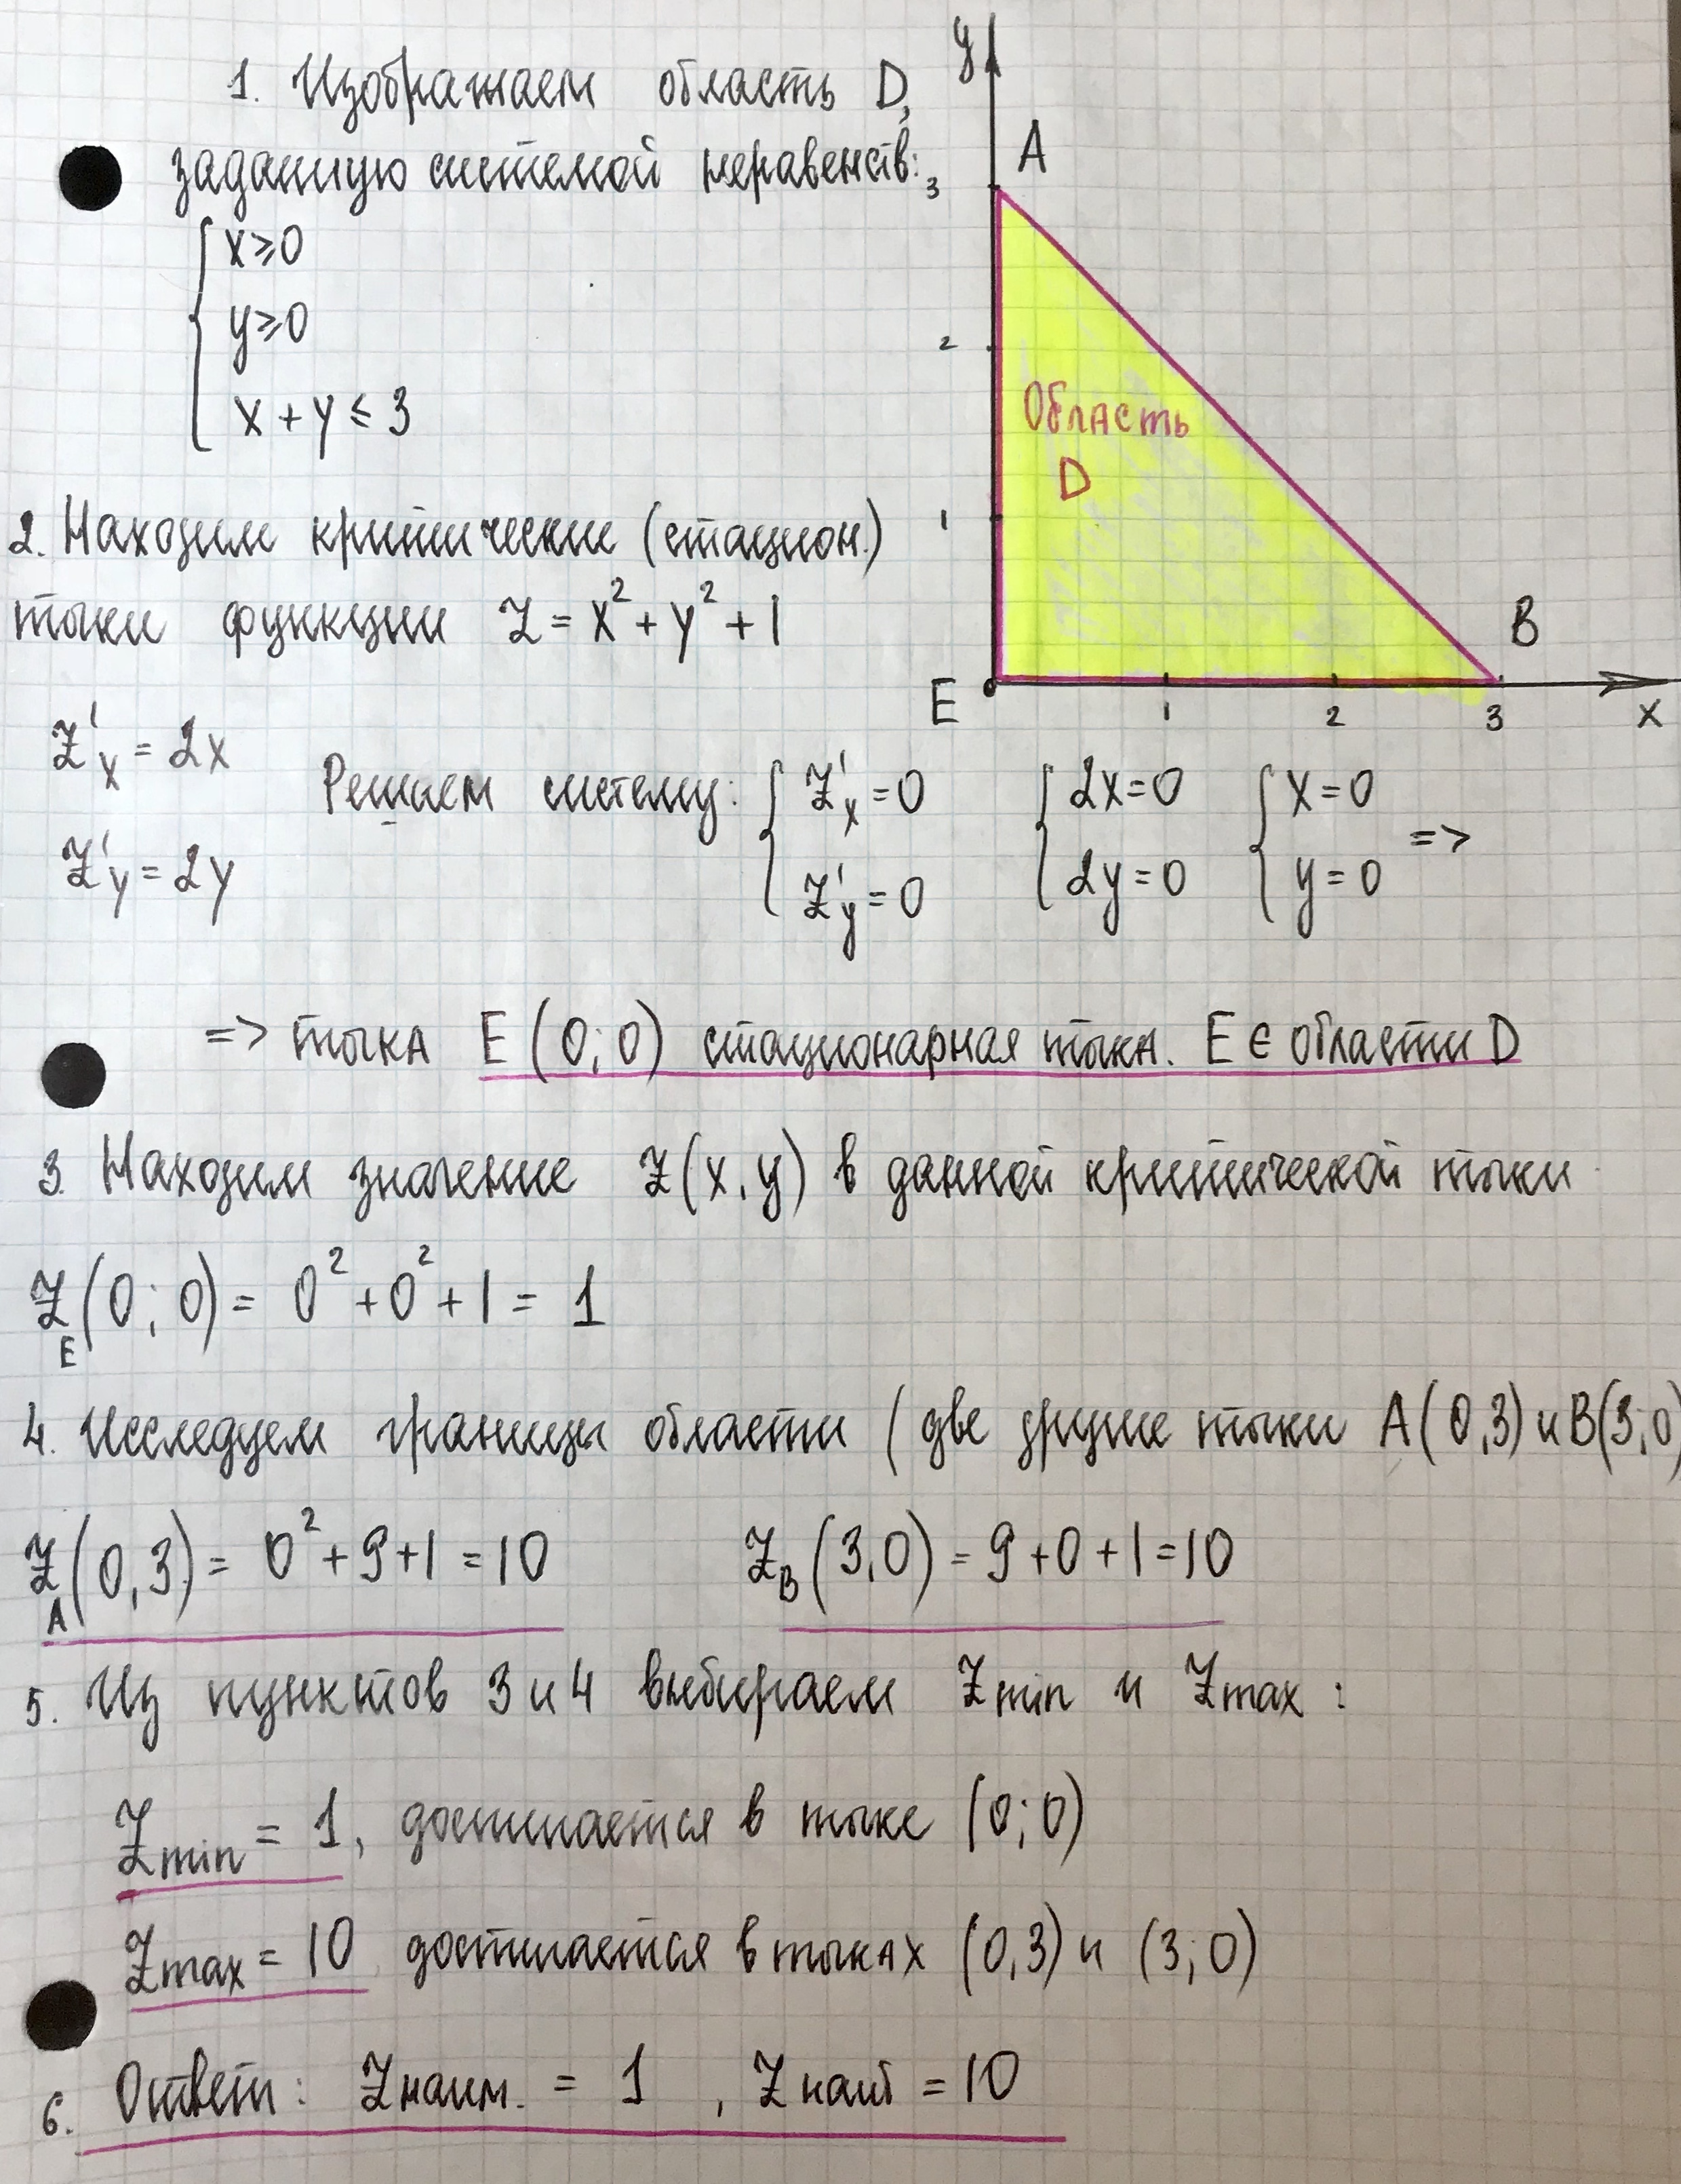 1. Изображаем область D,
заданную системой неравенств:
x ≥ 0
y ≥ 0
x + y ≤ 3
y
A
3
2
1
Область
D
E
1
2
3
B
x
2. Находим критические (стацион.)
точки функции Z = x² + y² + 1
Z'x = 2x
Z'y = 2y
Решаем систему: { Z'x = 0 { 2x = 0 { x = 0
Z'y = 0 2y = 0 y = 0 =>
=> точка E (0; 0) стационарная точка. E ∈ области D
3. Находим значение Z(x, y) в данной критической точки
Z_E (0; 0) = 0² + 0² + 1 = 1
4. Исследуем границы области ( две другие точки A(0,3) и B(3;0)
Z_A (0,3) = 0² + 9 + 1 = 10 Z_B (3,0) = 9 + 0 + 1 = 10
5. Из пунктов 3 и 4 выбираем Zmin и Zmax :
Zmin = 1, достигается в точке (0; 0)
Zmax = 10 достигается в точках (0,3) и (3; 0)
6. Ответ: Zнаим. = 1 , Zнаиб = 10